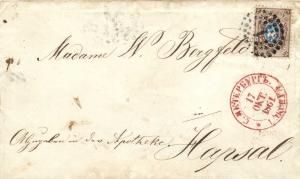 Madame W. Bergfeld
С. ПЕТЕРБУРГЪ
17
ОКТ.
1861
Abzugeben in der Apotheke
in Hapsal